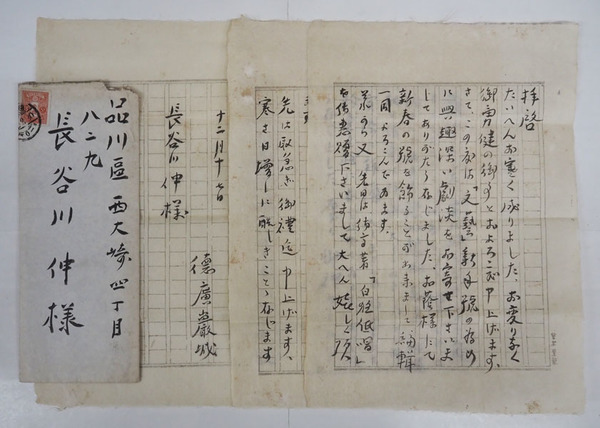 拝啓
たいへんお寒く成りました、お変りなく
御勇健の御事とおよろこび申上げます、
さてこの度は「文藝」新年號の為め
に興趣深い劇談をお寄せ下さいま
してありがたう存じました お蔭様にて
新春の號を飾ることが出来まして編輯
一同よろこんで ます、
又 先日は御高著「白 低唱」
を御恵贈下さいまして大へん嬉しく頂
先は取急ぎ御禮迄申上げます、
寒さ日増しに厳しきことゝ存じます
十二月十七日
長谷川伸様
徳廣巖城
品川區西大崎四丁目
八二九
長谷川伸様